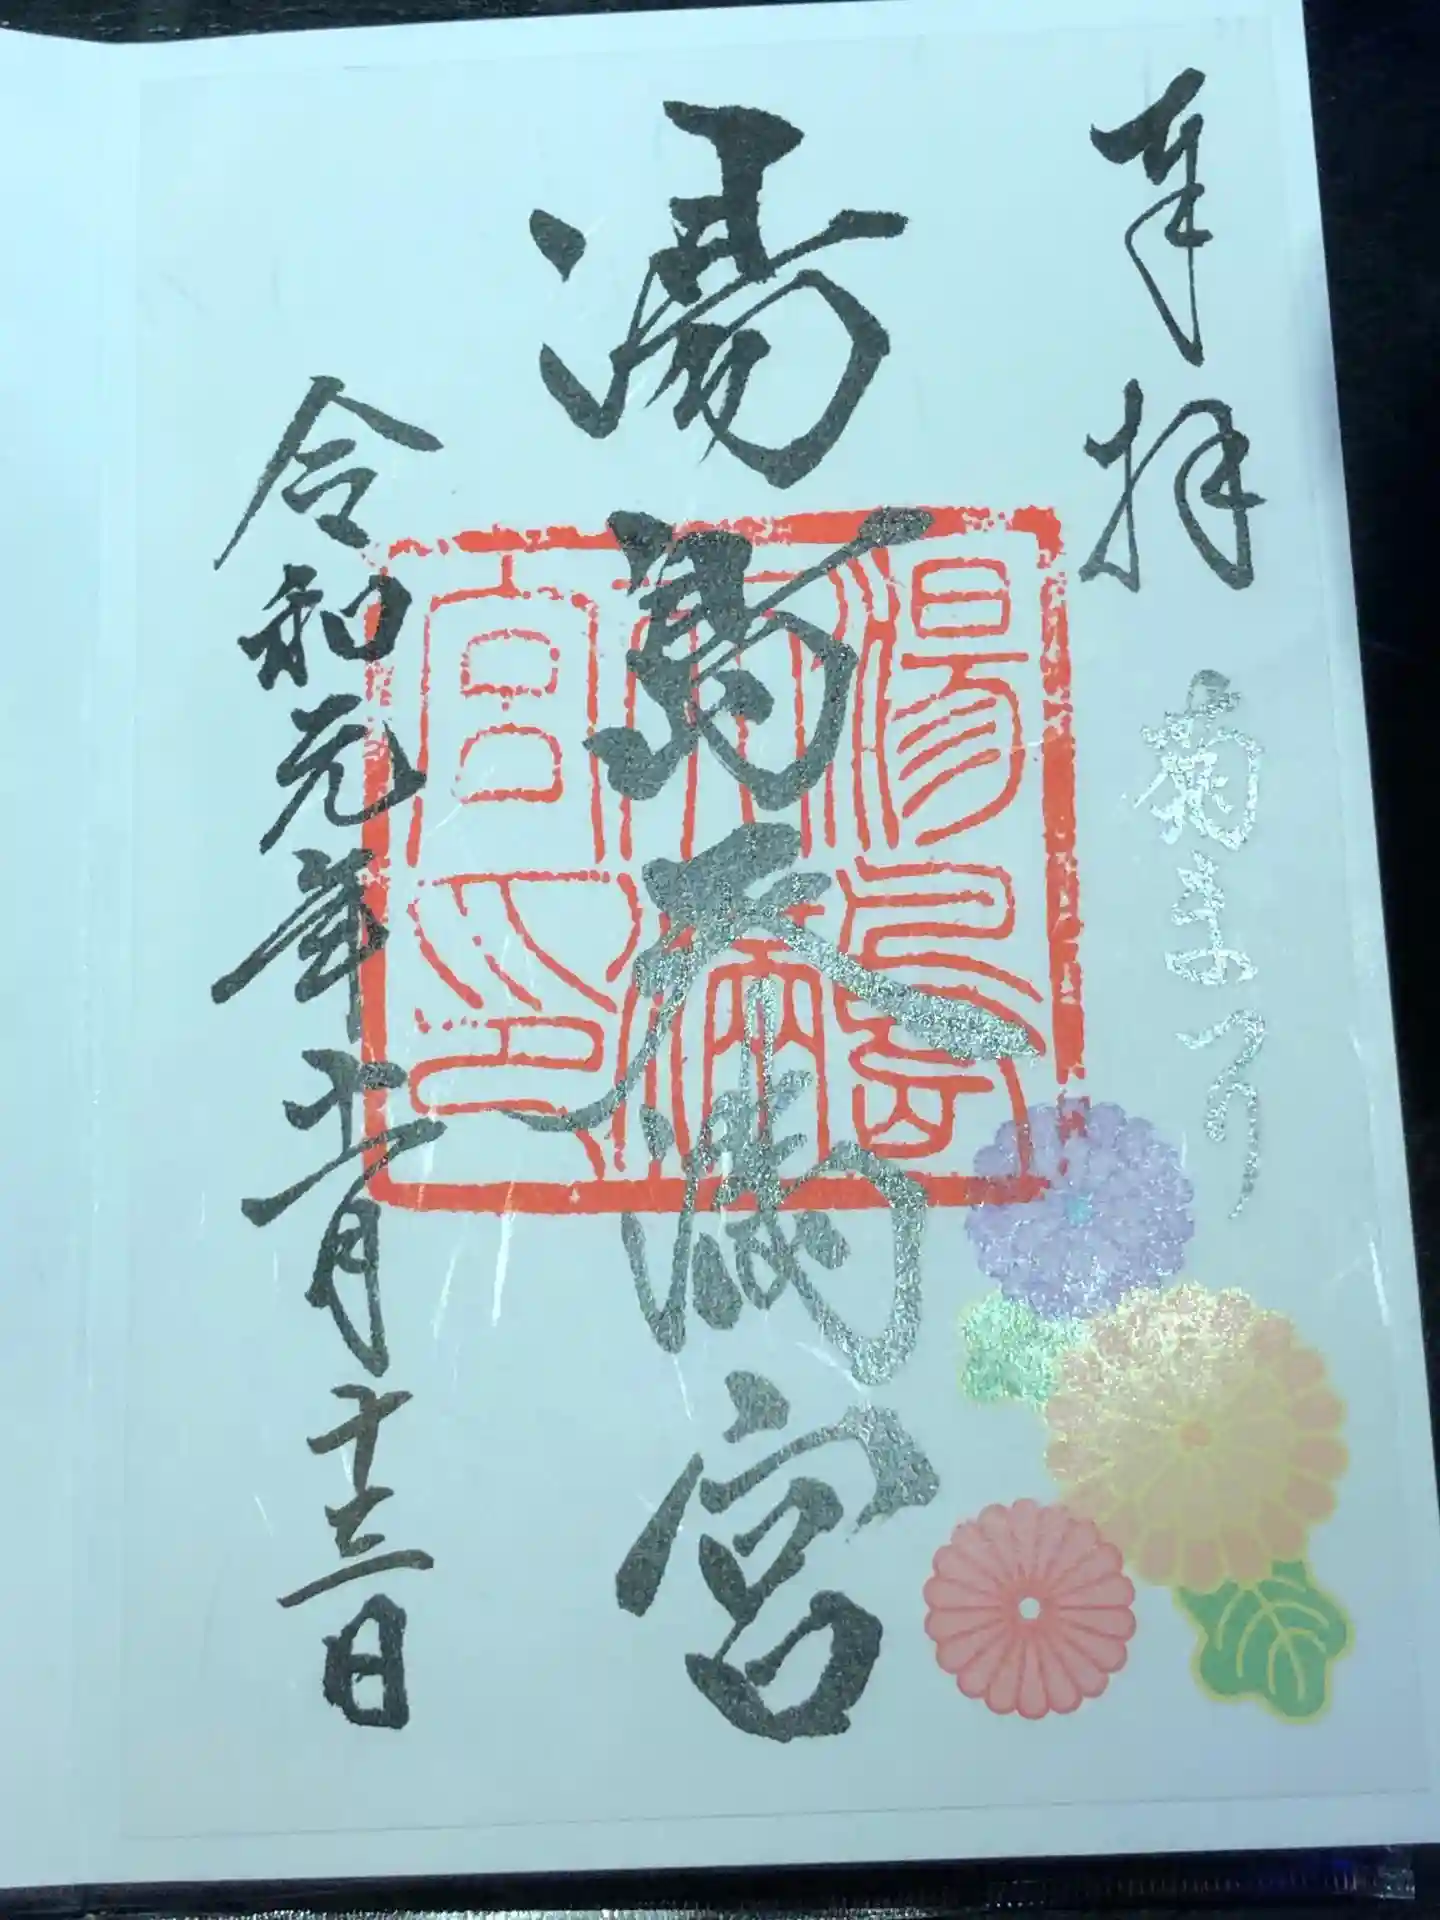 奉拝
菊まつり
湯島天満宮
湯島天満宮印
令和元年十一月十三日